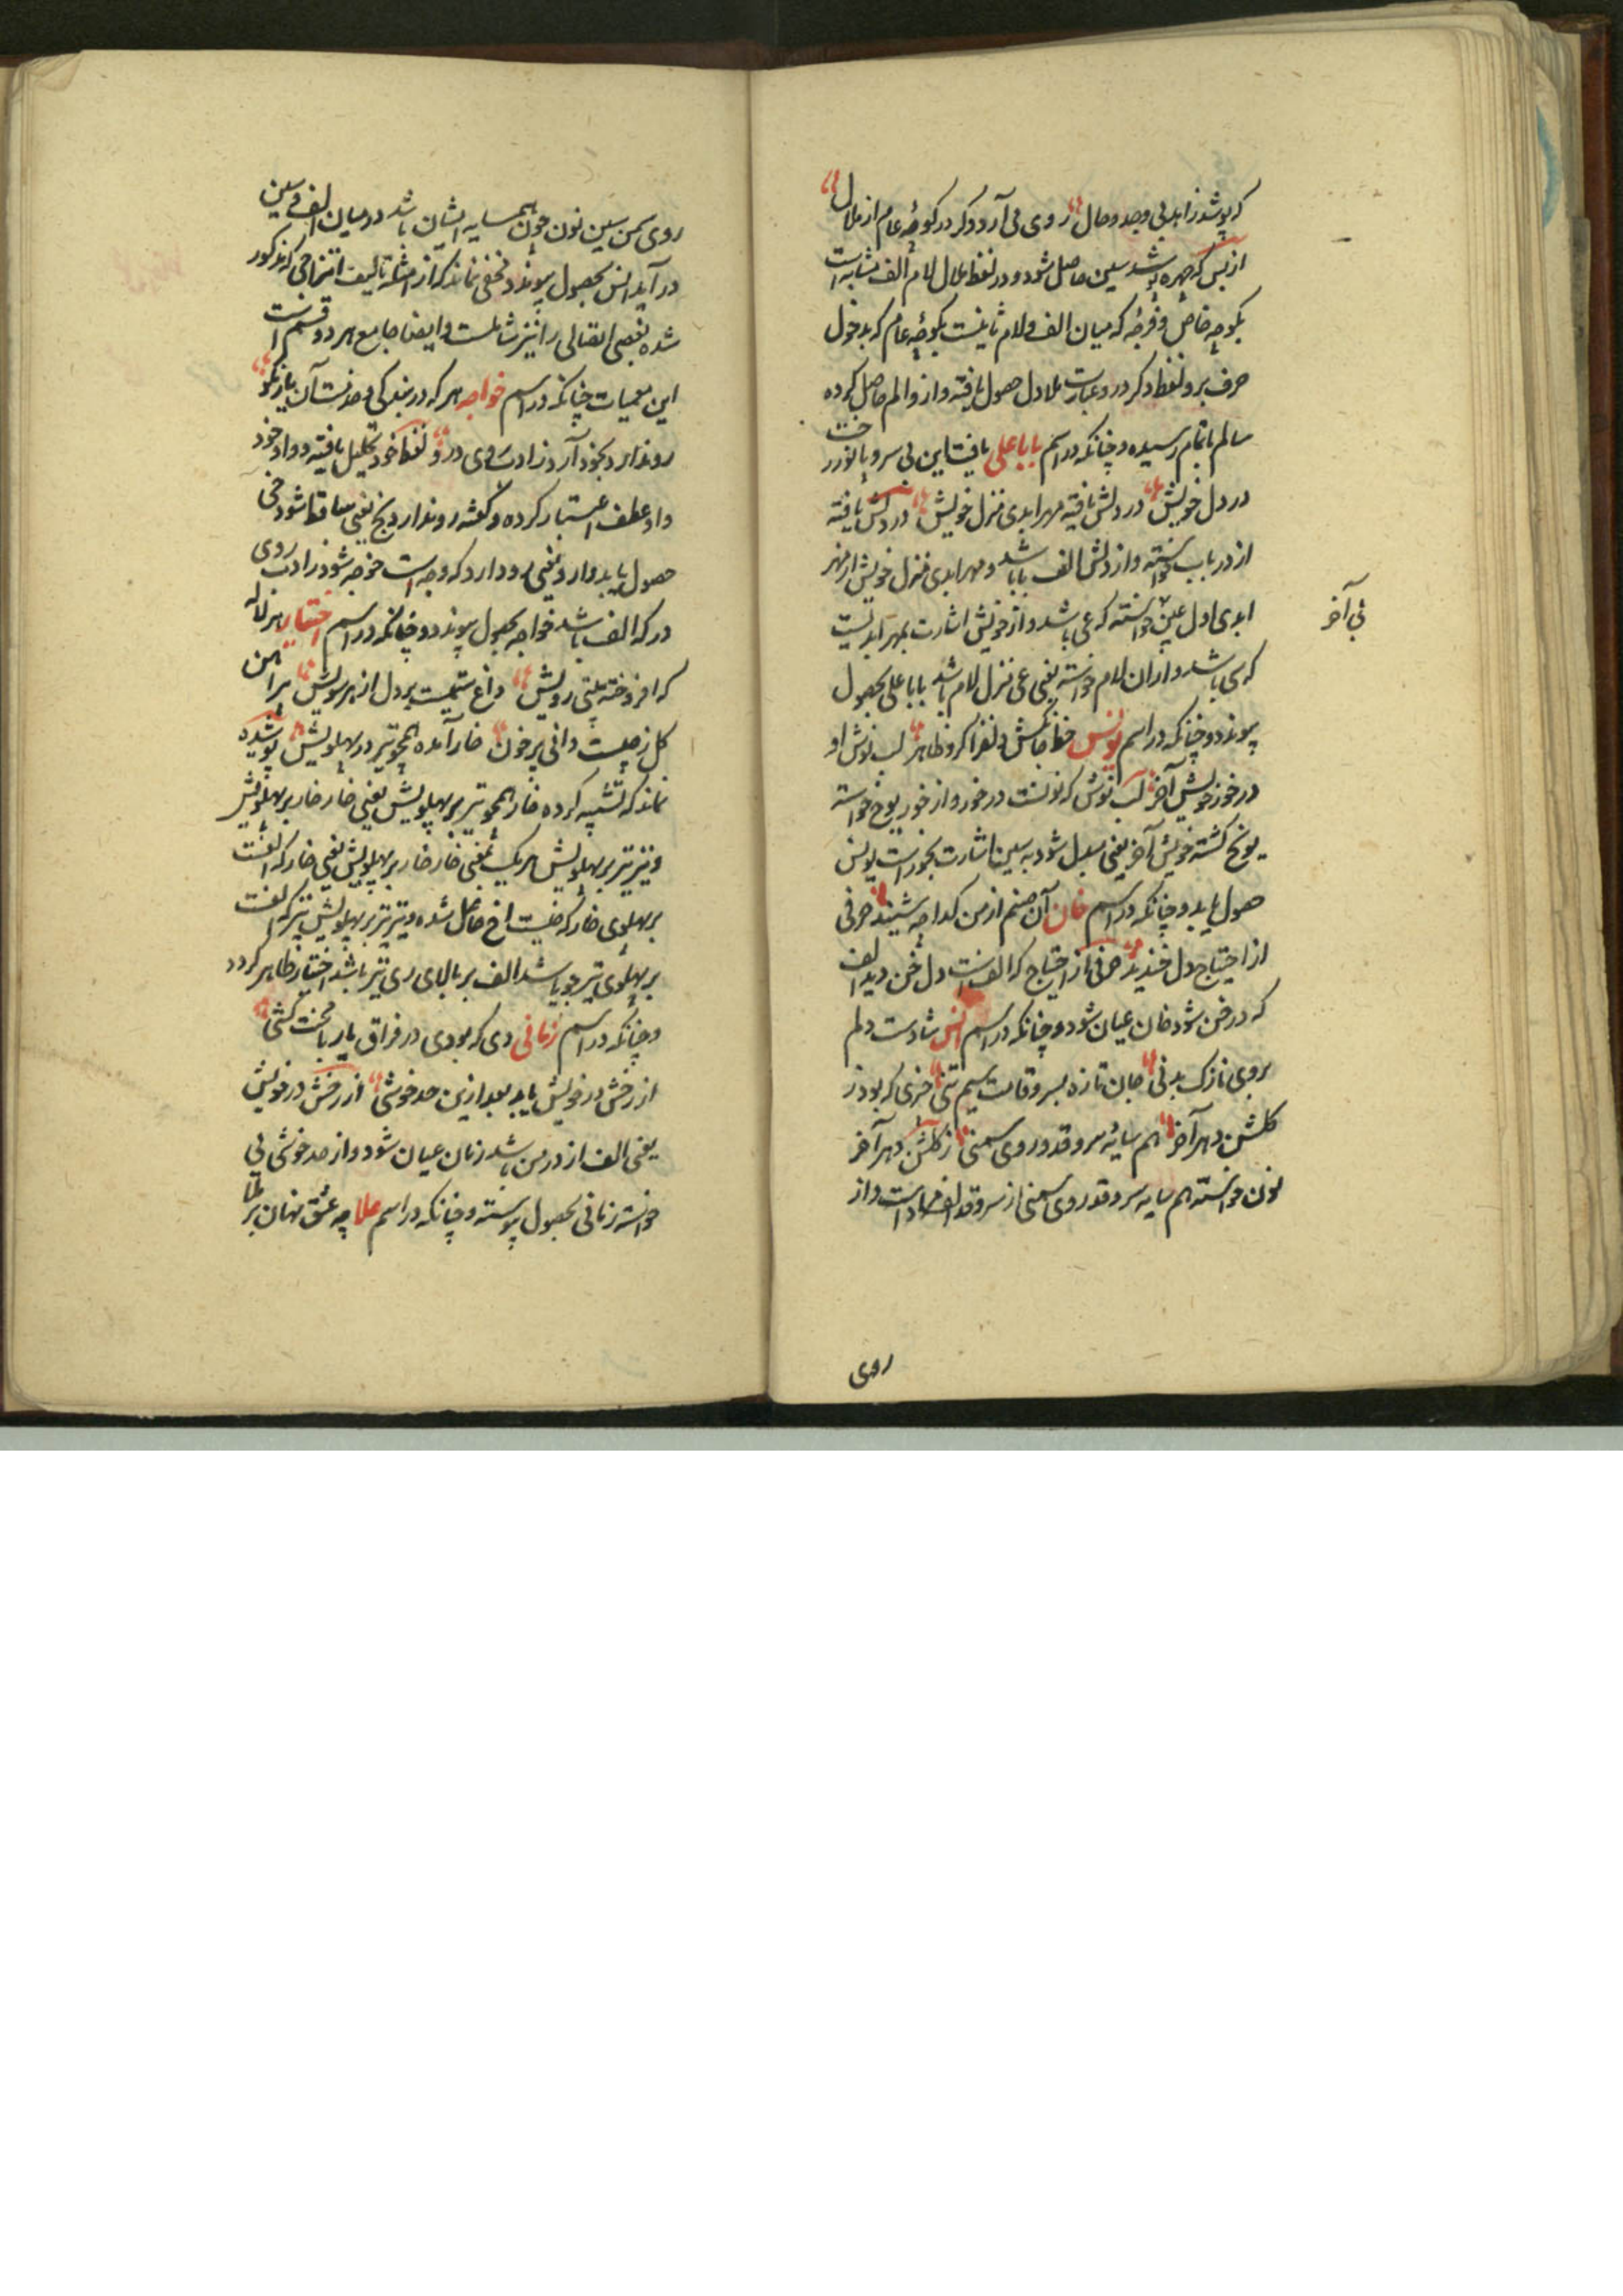 که پوشد زاهد بی وجد و حال روی می آرد دگر در کوچهٔ عام از ملال
از بس که چهره پوشد سین حاصل شود و در لفظ عال لام الف مشابه است
بکوچه خاص و فرجه که میان الف و لام ثانیست بکوچهٔ عام که بدخول
حرف بر و لفظ دگر در و عبارت علادل حصول یافته و از و الم حاصل کرده
سالم باتمام رسیده و چنانکه در اسم بابا علی یافت این بی سر و پا نورد
در دل خویش در دلش یافته مهر ابدی منزل خویش در دلش یافته
از در باب خواسته و از دلش الف بابا شد و مهر ابدی منزل خویش از مهر
ابدی اول عین خواسته که عی باشد و از خویش اشارت بمهر ابدیست
که سی باشد و از ان لام خواسته یعنی عی منزل لام باشد بابا علی بحصول
پیوندد و چنانکه در اسم یونس خط جانکش دلفزا کرو ظاهر لب نوش او
در خور خویش آخر لب نوش که نونست در خور و از خور یوح خواسته
یونح کشته خویش آخر یعنی مبدل شود به سین اشارت بحور است یونس
حصول یابد و چنانکه در اسم خان آن صنم از من کدا چه شنید حرفی
از احتیاج دل خندید حرفی از احتیاج که الف است دل خن دید الف
که در خن شود خان عیان شود و چنانکه در اسم انس شادست دلم
بروی نازک بدنی جان تازه بسر و قامت سیم تنی خری که بود ز
کلشن دهر آخر هم سایه سرو قد و روی سمنی ز کلشن دهر آخر
نون خواسته هم سایه سرو قد روی سمنی از سرو قد الف مراد است و از
بی آخر
روی
روی سمن سین نون چون همسایه ایشان باشد در میان الف و سین
در آید انس بحصول پیوندد مخفی نماند که از امثله تالیف امتزاجی که مذکور
شده بعضی اتصالی را نیز شاملست و ایضا جامع هر دو قسم است
این معمیات چنانکه در اسم خواجه هر که در بندکی و خدمت آن یار نکو
رو ندارد بخود آر و ز ادب روی درو لفظ خود تحلیل یافته و واو خود
واو عطف اعتبار کرده و کفته رو ندارد یعنی ساقط شود خی
حصول یابد و ار و یعنی رو دارد که وجه است خوجه شود ز ادب روی
در که الف باشد خواجه بحصول پیوندد و چنانکه در اسم اختیار هر لاله
که افروخته بینی رویش داغ ستمیست بر دل از هر سویش پیراهن
کل ز چیست دانی پر خون خار آمده همچو تیر در پهلویش پوشیده
نماند که تشبیه کرده خار همچو تیر بر پهلویش یعنی خار خار بر پهلویش
و نیز تیر بر پهلویش هر یک بمعنی خار خار بر پهلویش یعنی خار که الفست
بر پهلوی خار که خیست اخ حاصل شده و تیر تیر بر پهلویش تیر که الفست
بر پهلوی تیر چو باشد الف بر بالای ری تیر باشد اختیار ظاهر کردد
و چنانکه در اسم زمانی دی که بودی در فراق یار با محنت کشی
از رخش در خویش یابد بعد ازین حد خوشی از رخش در خویش
یعنی الف از در من باشد زمان عیان شود و از حد خوشی یی
خواسته زمانی بحصول پیوسته و چنانکه در اسم علا چه عشق نهان بر